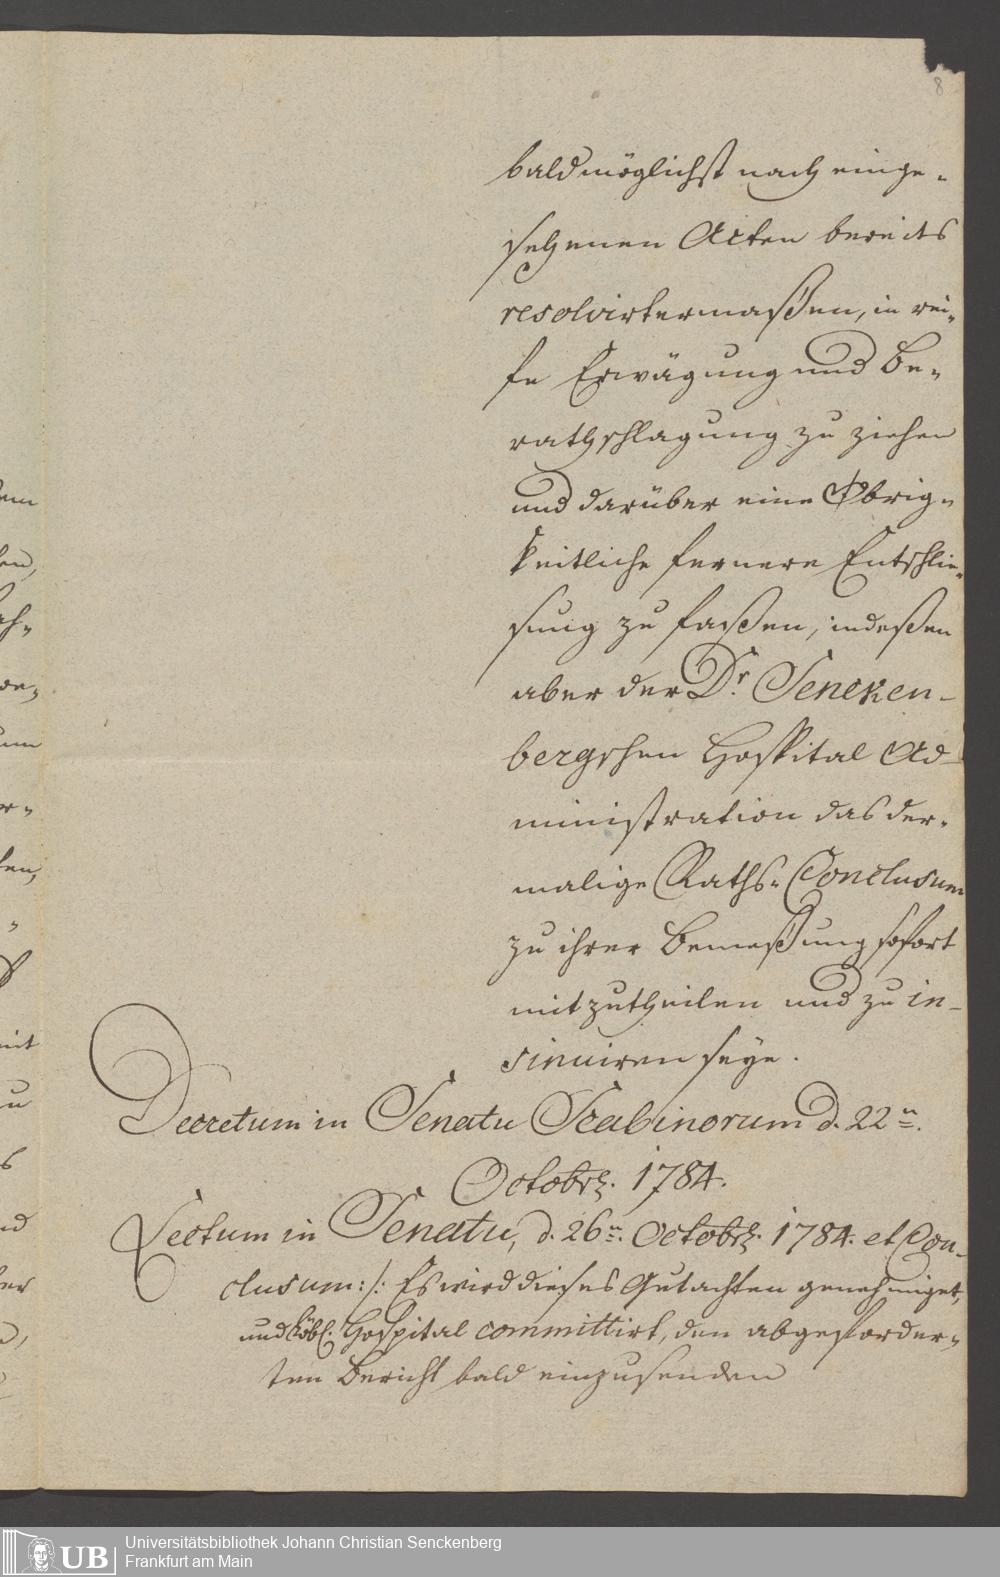 8
baldmöglichst nach einge-
sehenen Acten bereits
resolvirtermaßen, in rei-
fe Erwägung und Be-
rathschlagung zu ziehen
und darüber eine Obrig-
keitliche fernere Entschlie-
sung zu faßen, indeßen
aber der Dr. Sencken-
bergschen Hospital Ad-
ministration das der-
malige Raths-Conclusum
zu ihrer Bemeßung sofort
mitzutheilen und zu in-
sinuiren seye.
Decretum in Senatu Scabinorum d. 22n.
Octobrs. 1784.
Lectum in Senatu, d. 26n. Octobrs. 1784. et Con-
clusum :/: Es wird dieses Gutachten genehmiget,
und Löbl. Hospital committirt, den abgeforder-
ten Bericht bald einzusenden
UB
Universitätsbibliothek Johann Christian Senckenberg
Frankfurt am Main